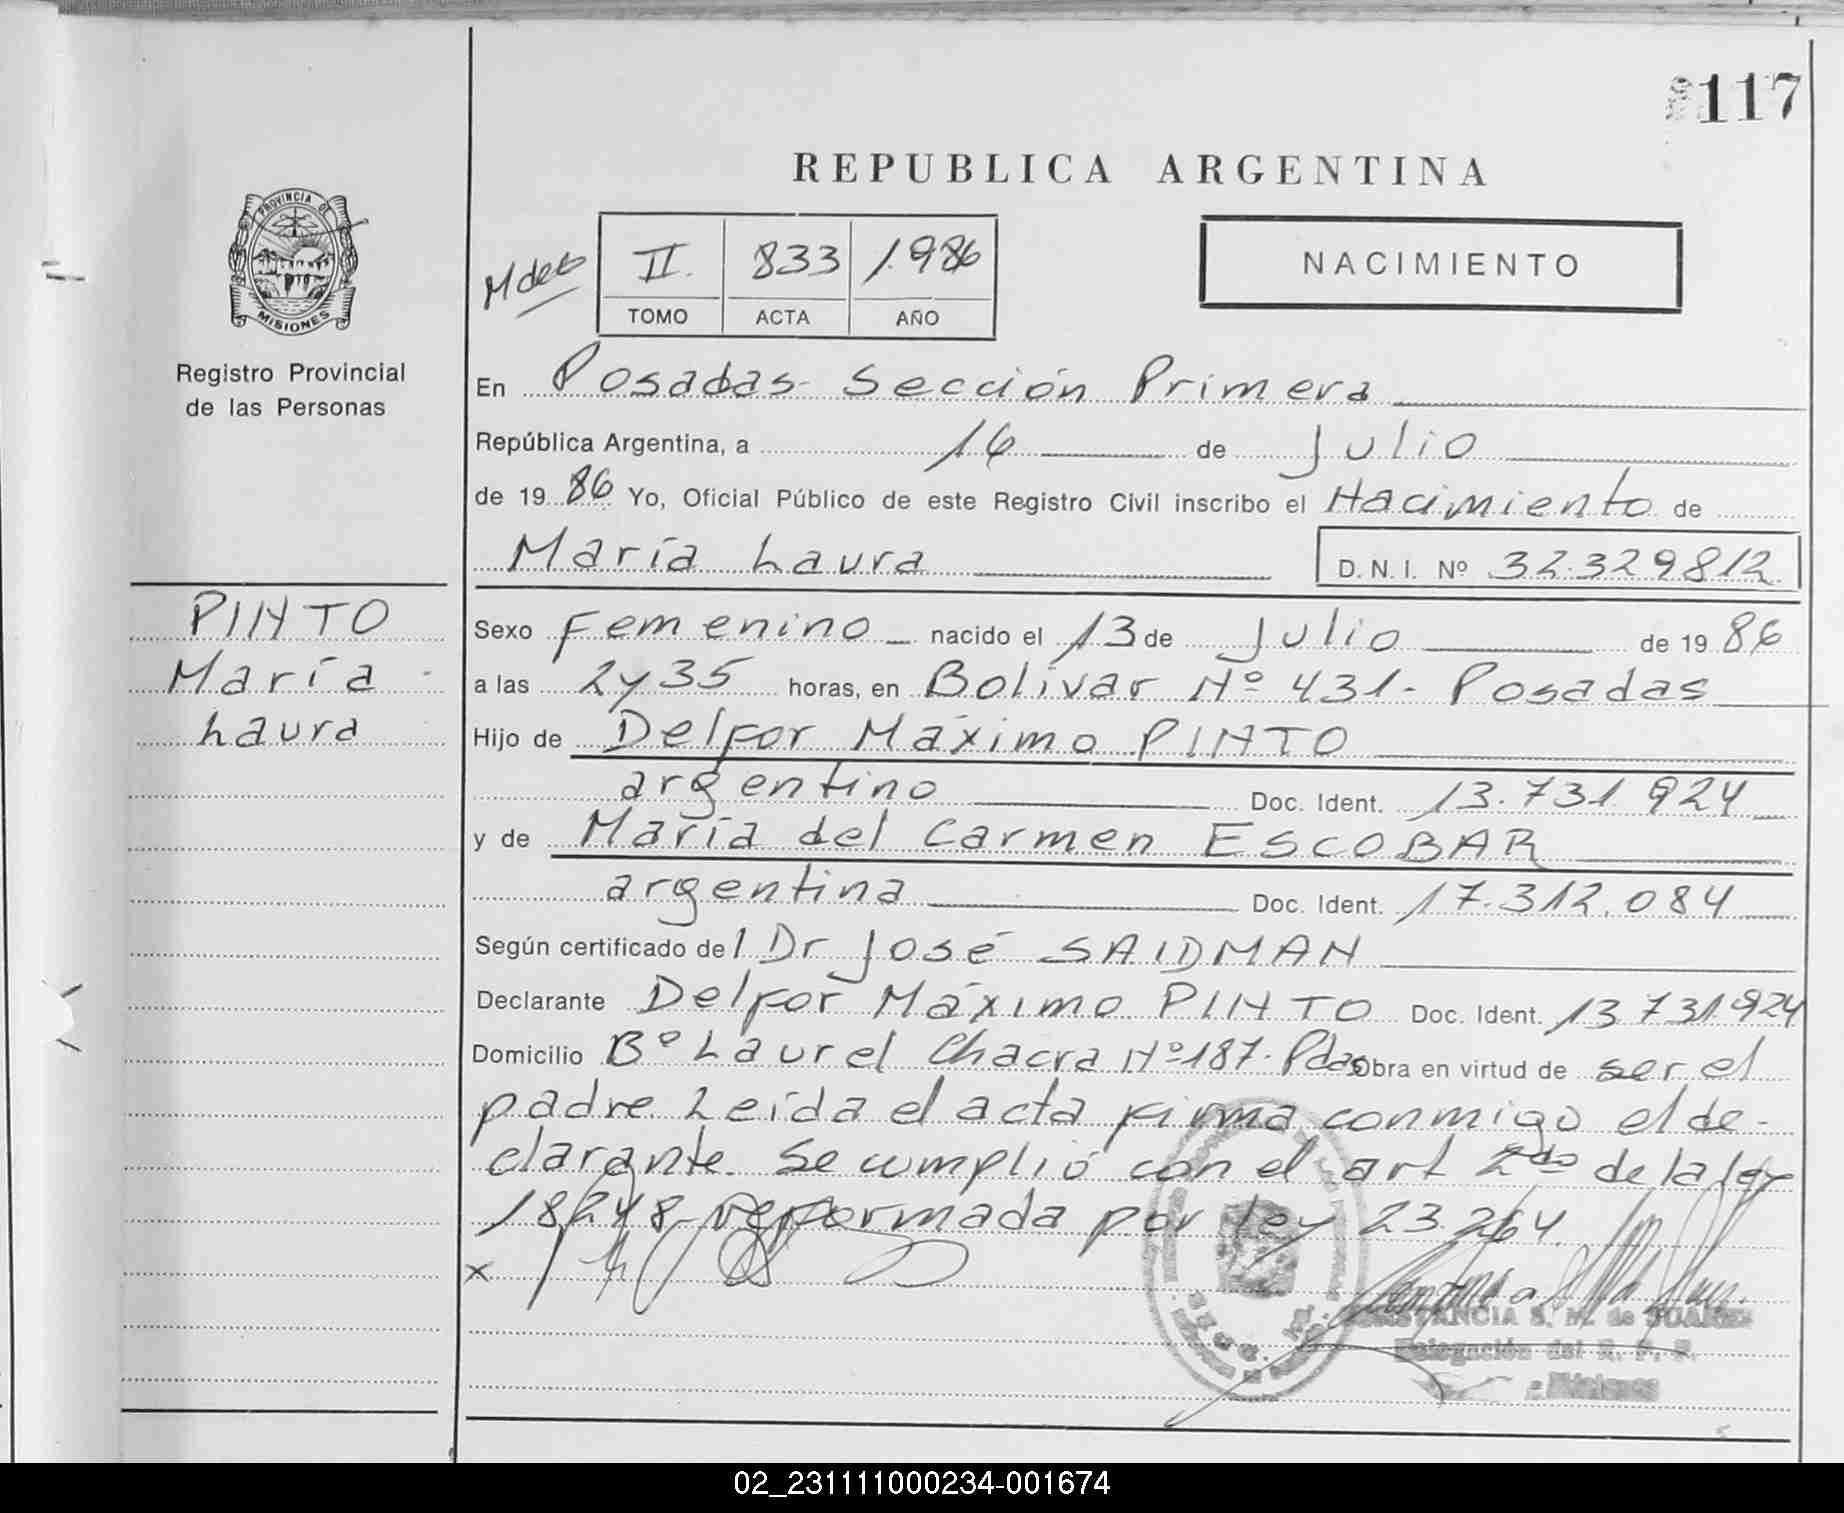 117
REPUBLICA ARGENTINA
PROVINCIA DE
MISIONES
Registro Provincial
de las Personas
II. 833 1.986
TOMO ACTA AÑO
NACIMIENTO
En Posadas- Sección Primera
República Argentina, a 16 de Julio
de 19 86 Yo, Oficial Público de este Registro Civil inscribo el Nacimiento de
María Laura D.N.I. Nº 32.329812
PINTO
María
Laura
Sexo Femenino nacido el 13 de Julio de 19 86
a las 2 y 35 horas, en Bolívar Nº 431- Posadas
Hijo de Delfor Máximo PINTO
argentino Doc. Ident. 13.731.924
y de María del Carmen ESCOBAR
argentina Doc. Ident. 17.312.084
Según certificado del Dr José SAIDMAN
Declarante Delfor Máximo PINTO Doc. Ident. 13 731.924
Domicilio Bº Laurel Chacra Nº 187- Pdas Obra en virtud de ser el
padre Leída el acta firma conmigo el de-
clarante. Se cumplió con el art 2do de la ley
18248 reformada por ley 23.264.
x
CONSTANCIA S. M. de SUAREZ
Delegación del R. P. P.
Misiones
02_231111000234-001674